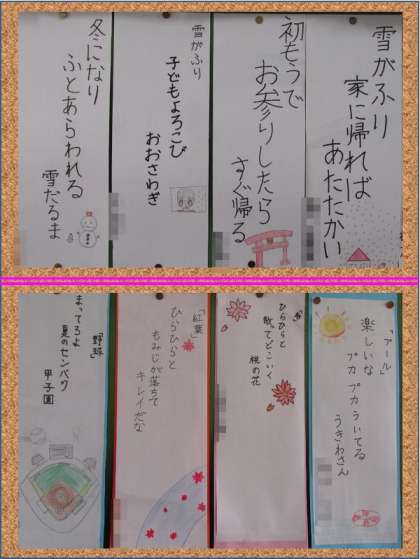 雪がふり
家に帰れば
あたたかい
初もうで
お参りしたら
すぐ帰る
雪がふり
子どもよろこび
おおさわぎ
冬になり
ふとあらわれる
雪だるま
「プール」
楽しいな
プカプカういてる
うきわさん
ひらひらと
散ってどこいく
桃の花
「紅葉」
ひらひらと
もみじが落ちて
キレイだな
「野球」
まってろよ
夏のセンバツ
甲子園